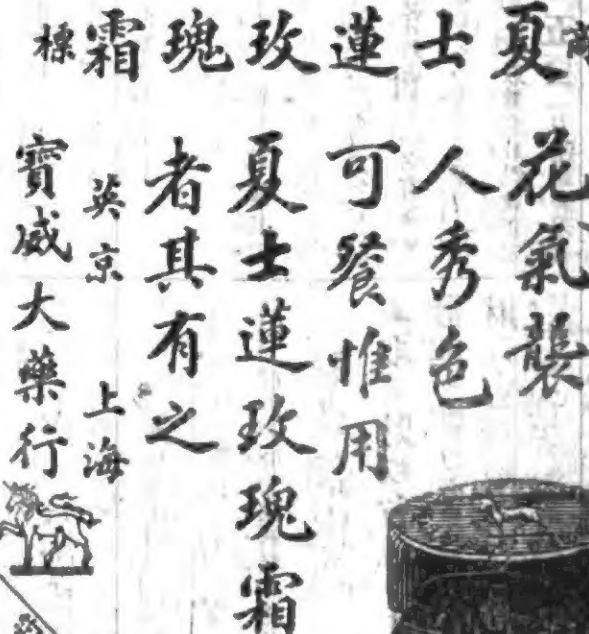 夏士蓮玫瑰霜標
花氣襲
人秀色
可餐惟用
夏士蓮玫瑰霜
者其有之
英京 上海
寶威大藥行